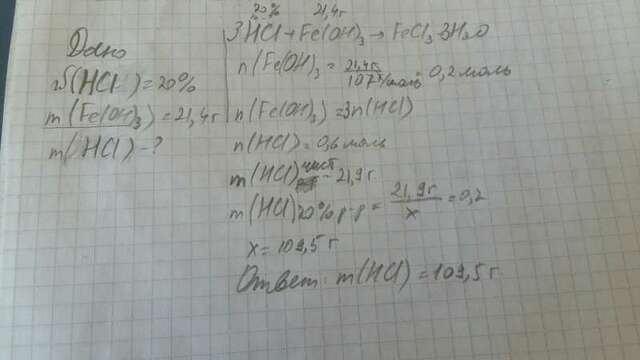 Дано
W(HCl) = 20%
m(Fe(OH)₃) = 21,4г
m(HCl) - ?
20% 21,4г
3HCl + Fe(OH)₃ → FeCl₃ 3H₂O
n(Fe(OH)₃ = 21,4г / 107г/моль = 0,2 моль
n(Fe(OH)₃) = 3n(HCl)
n(HCl) = 0,6 моль
m(HCl)чист = 21,9г
m(HCl)20% р-р = 21,9г / x = 0,2
x = 109,5 г
Ответ: m(HCl) = 109,5г